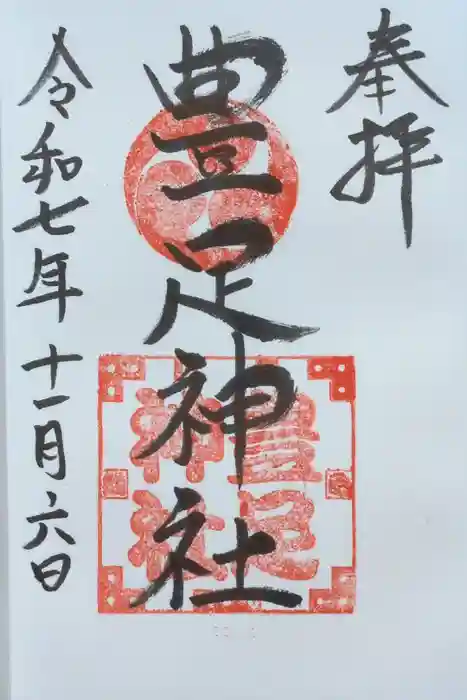 奉拝
豊足神社
豊足
神社
令和七年十一月六日